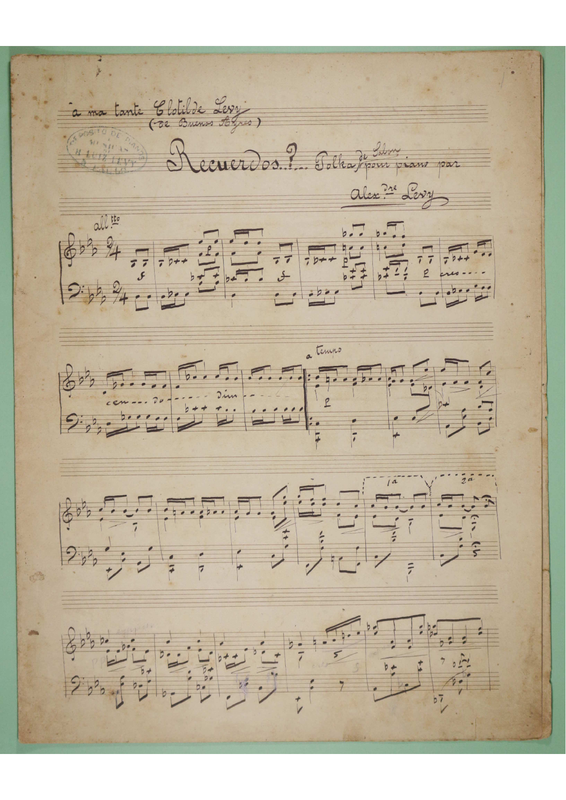 à ma tante Clotilde Levy
(de Buenos Ayres)
Recuerdos..?... Polka de Salon pour piano par
Alex.dre Levy
all.tto
2/4
2/4
cres----
cen--do-----dim---
a tempo
1a
2a